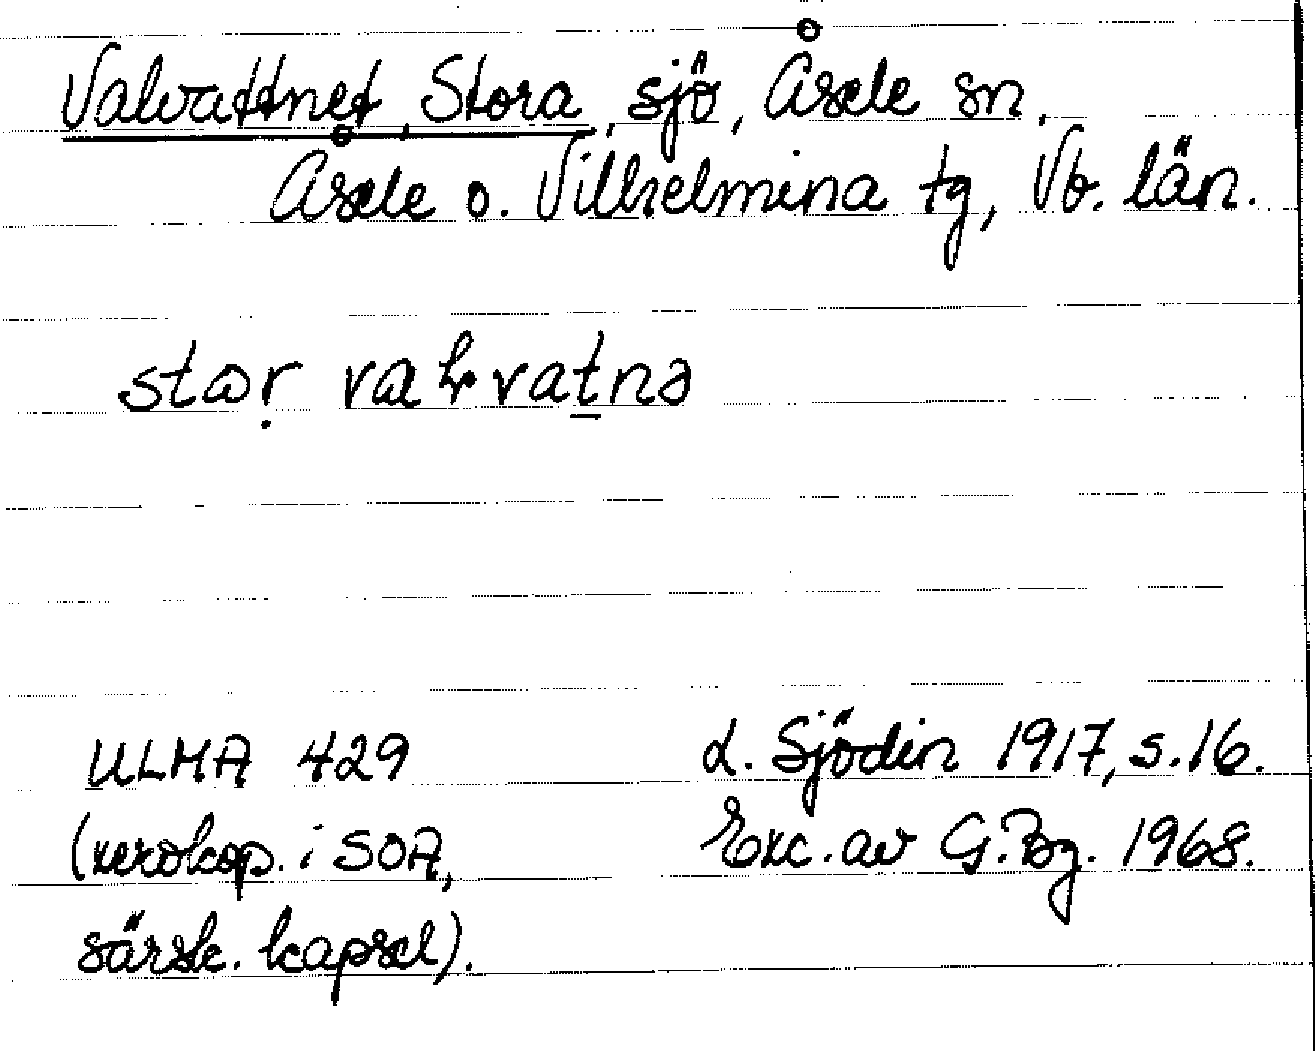 Valvattnet, Stora, sjö, Åsele sn.
Åsele o. Vilhelmina tg, Vb. län.
ULMA 429
L. Sjödin 1917, s.16.
(xerokop. i SOA,
Exc. av G.Bg. 1968.
särsk. kapsel).